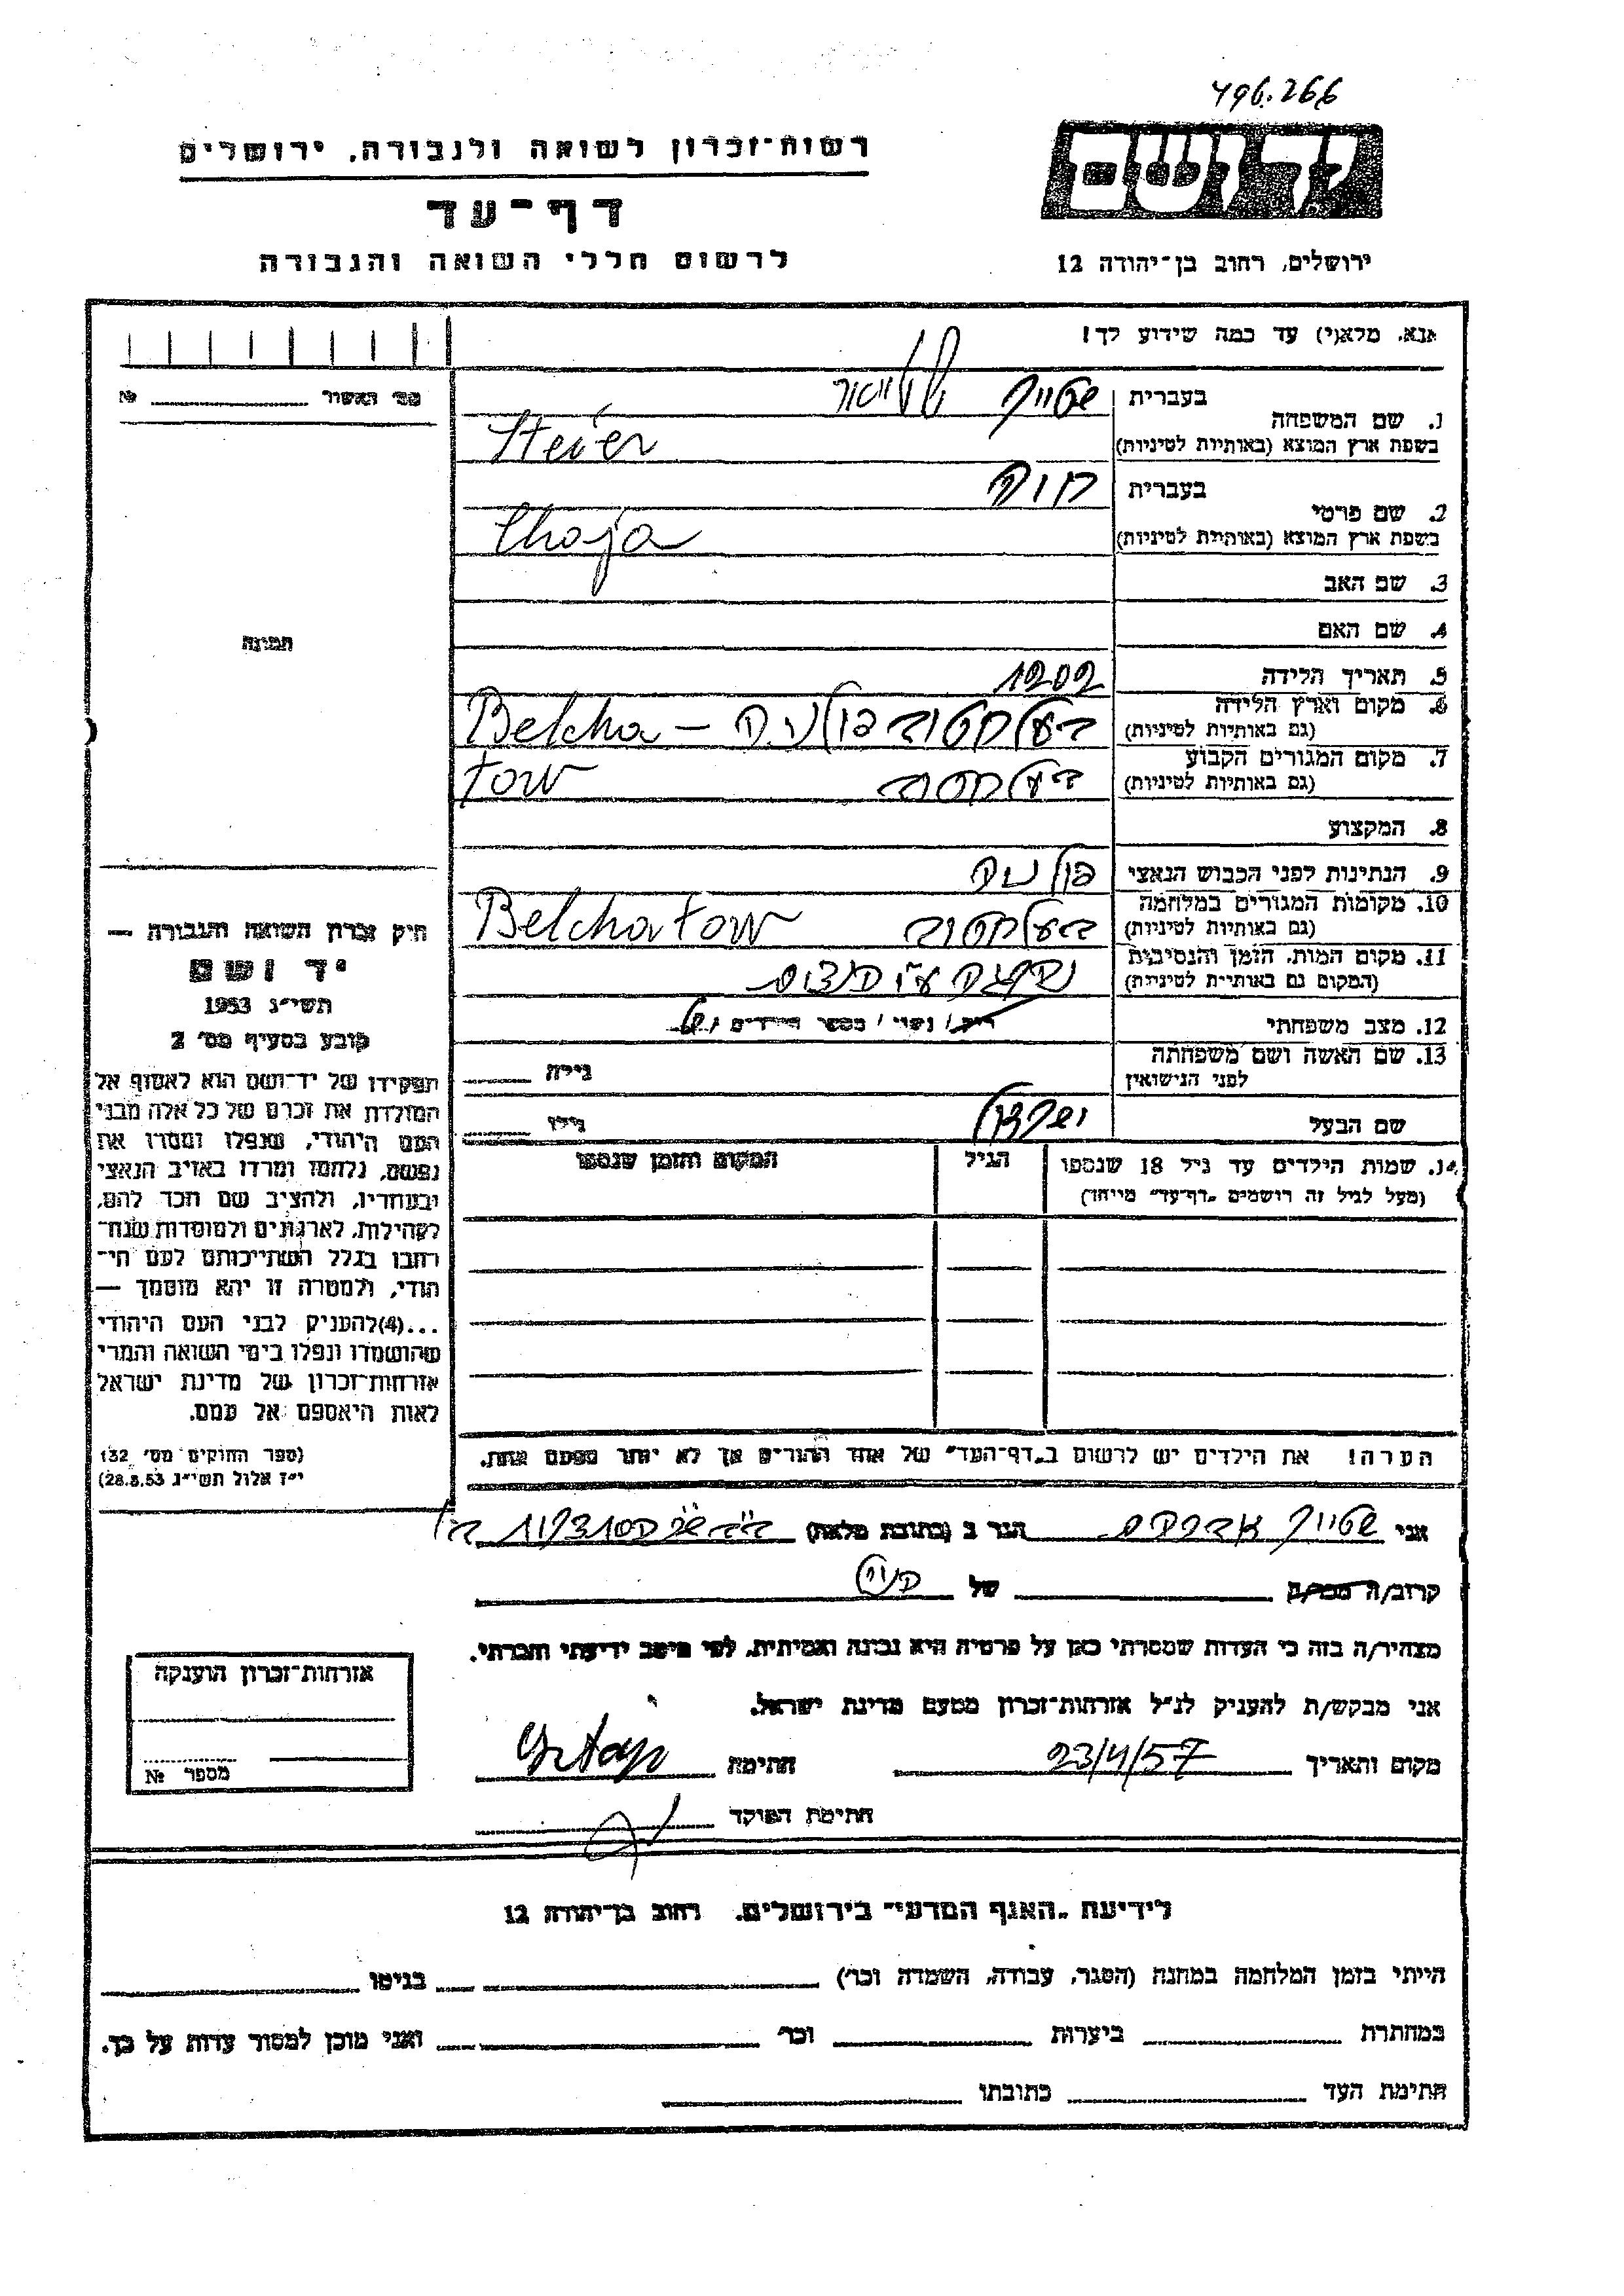 496.266
רשות־זכרון לשואה ולגבורה, ירושלים
יד ושם
דף־עד
לרשום חללי השואה והגבורה
ירושלים, רחוב בן־יהודה 12
אנא, מלא(י) עד כמה שידוע לך!
מס׳ האשור №
בעברית
1. שם המשפחה
בשפת ארץ המוצא (באותיות לטיניות) Steier
בעברית חיה
2. שם פרטי
בשפת ארץ המוצא (באותיות לטיניות) Chaja
3. שם האב
4. שם האם
תמונה
5. תאריך הלידה 1202
6. מקום וארץ הלידה בעלחטוב פולניה – Belcha
(גם באותיות לטיניות)
7. מקום המגורים הקבוע בעלחטוב tow
(גם באותיות לטיניות)
8. המקצוע
9. הנתינות לפני הכבוש הנאצי
10. מקומות המגורים במלחמה בעלחטוב Belchatow
(גם באותיות לטיניות)
11. מקום המות, הזמן והנסיבות
(המקום גם באותיות לטיניות)
12. מצב משפחתי רוק/ נשוי/ מספר הילדים
13. שם האשה ושם משפחתה גילה
לפני הנישואין
שם הבעל גילו
14. שמות הילדים עד גיל 18 שנספו הגיל המקום והזמן שנספו
(מעל לגיל זה רושמים „דף־עד״ מייחד)
חוק זכרון השואה והגבורה —
יד ושם
תשי״ג 1953
קובע בסעיף מס׳ 2
תפקידו של יד־ושם הוא לאסוף אל
המולדת את זכרם של כל אלה מבני
העם היהודי, שנפלו ומסרו את
נפשם, נלחמו ומרדו באויב הנאצי
ובעוזריו, ולהציב שם וזכר להם,
לקהילות, לארגונים ולמוסדות שנח־
רבו בגלל השתייכותם לעם הי־
הודי, ולמטרה זו יהא מוסמך —
...(4)להעניק לבני העם היהודי
שהושמדו ונפלו בימי השואה והמרי
אזרחות־זכרון של מדינת ישראל
לאות היאספם אל עמם.
(ספר החוקים מס׳ 132
י״ז אלול תשי״ג 28.8.53)
הערה! את הילדים יש לרשום ב„דף־העד״ של אחד ההורים אך לא יותר מפעם אחת.
אני הגר ב (כתובת מלאה)
קרוב/ה מכר/ה של
מצהיר/ה בזה כי העדות שמסרתי כאן על פרטיה היא נכונה ואמיתית, לפי מיטב ידיעתי והכרתי.
אני מבקש/ת להעניק לנ״ל אזרחות־זכרון מטעם מדינת ישראל.
מקום ותאריך 23/4/57 חתימה
חתימת הפוקד
אזרחות־זכרון הוענקה
מספר №
לידיעת „האגף המדעי״ בירושלים, רחוב בן־יהודה 12
הייתי בזמן המלחמה במחנה (הסגר, עבודה, השמדה וכו׳) בגיטו
במחתרת ביערות וכו׳ ואני מוכן למסור עדות על כך.
חתימת העד כתובתו